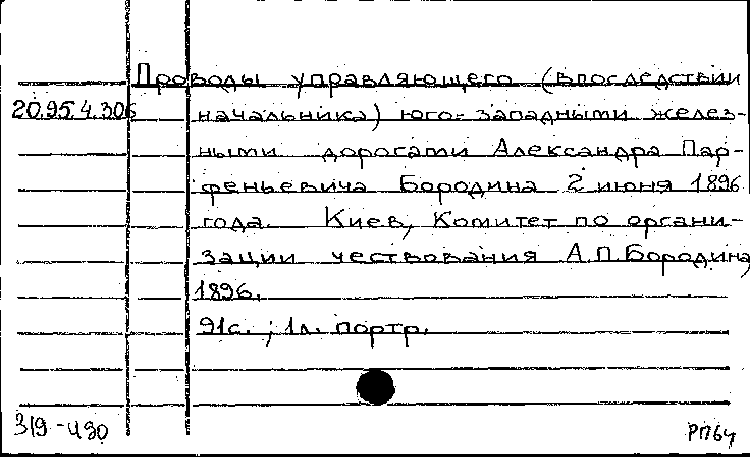 Проводы управляющего (впоследствии
20.95.4.306 начальника) юго-западными желез-
ными дорогами Александра Пар-
феньевича Бородина 2 июня 1896
года. Киев, Комитет по органи-
зации чествования А.П.Бородина,
1896.
91с.; 1л. портр.
319-490 РП64